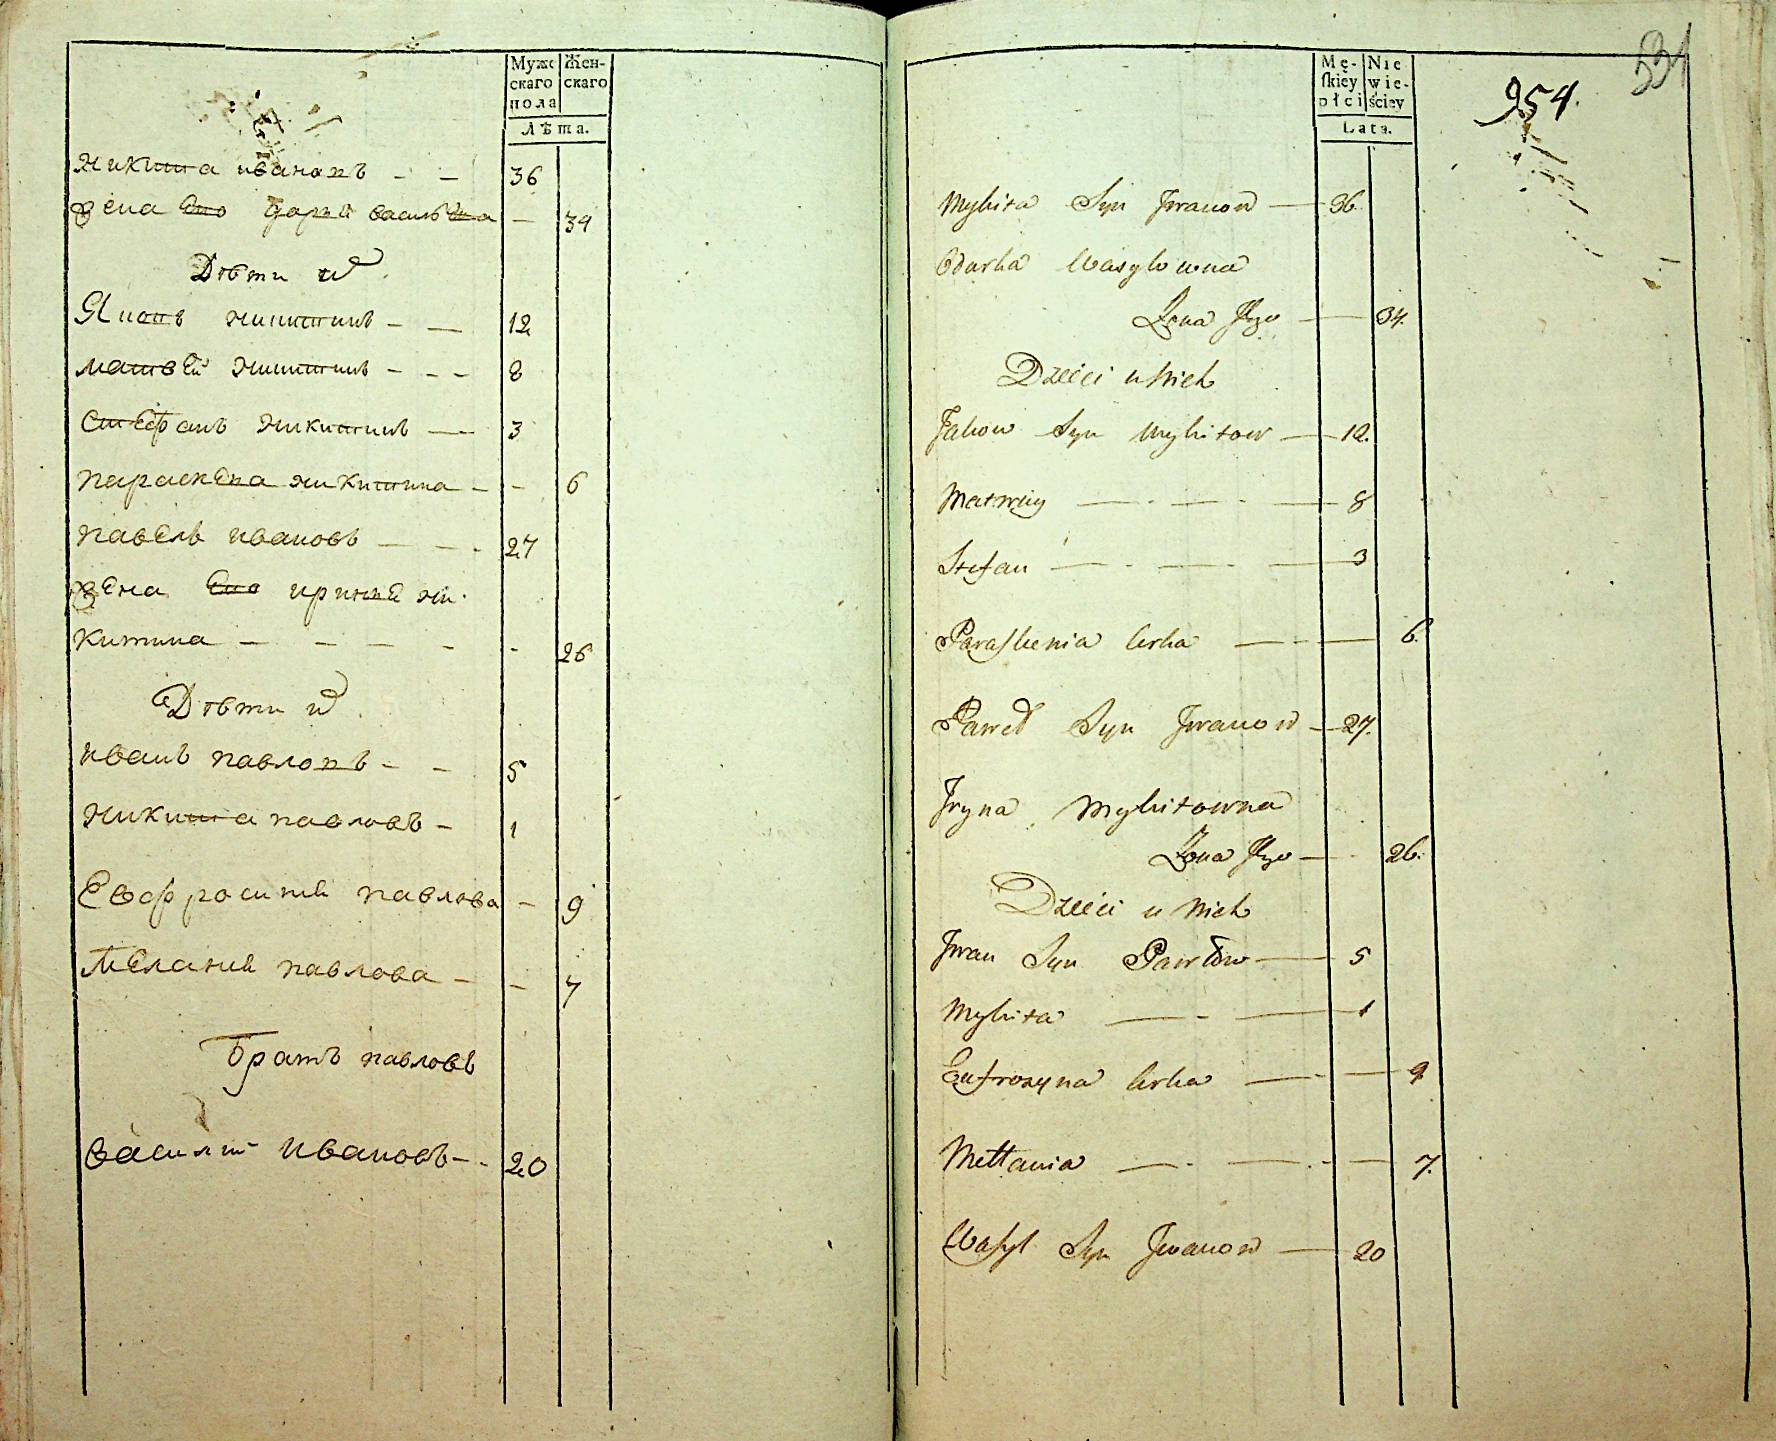 Муже
скаго
пола
Жен-
скаго
Лѣта.
Никита Ивановъ - - 36
жена Его Дарья Васильева - 34
Дѣти их
Яковъ Никитинъ - - 12
Матвѣй Никитинъ - - - 8
Стефанъ Никитинъ - 3
Параскева Никитина - - 6
Павелъ Ивановъ - - - 27
жена Его Ирина Ни-
китина - - - - - 26
Дѣти их
Иванъ Павловъ - - 5
Никита Павловъ - 1
Евфросинія Павлова - 9
Меланія Павлова - - 7
Братъ Павловъ
Василий Ивановъ - - 20
Mę-
skiéy
płci
Nie
wie-
ściey
Lata.
954.
531
Mykita Syn Jwanow - 36.
Odarka Wasylowna
Żona Jego - 34.
Dzieci u Nich
Jakow Syn Mykitow - 12.
Matwiey - - - 8
Stefan - - - 3
Paraskenia Corka - - - 6.
Paweł Syn Jwanow - 27.
Jryna Mykitowna
Żona Jego - 26.
Dzieci u Nich
Jwan Syn Pawłow - 5
Mykita - - - 1
Eufrozyna Corka - - - 9
Mełłania - - - - 7.
Wasyl Syn Jwanow - 20